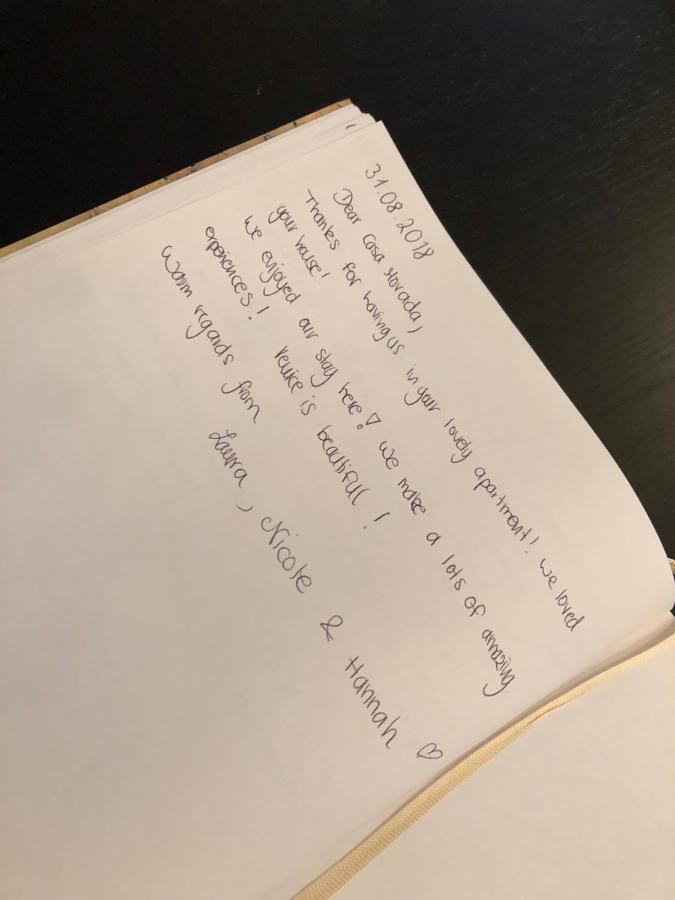 31.08.2018
Dear Casa Novada,
Thanks for having us in your lovely apartment! We loved
your house!
We enjoyed our stay here! We make a lots of amazing
experiences! Venice is beautiful!
Warm regards from Laura, Nicole & Hannah ♡